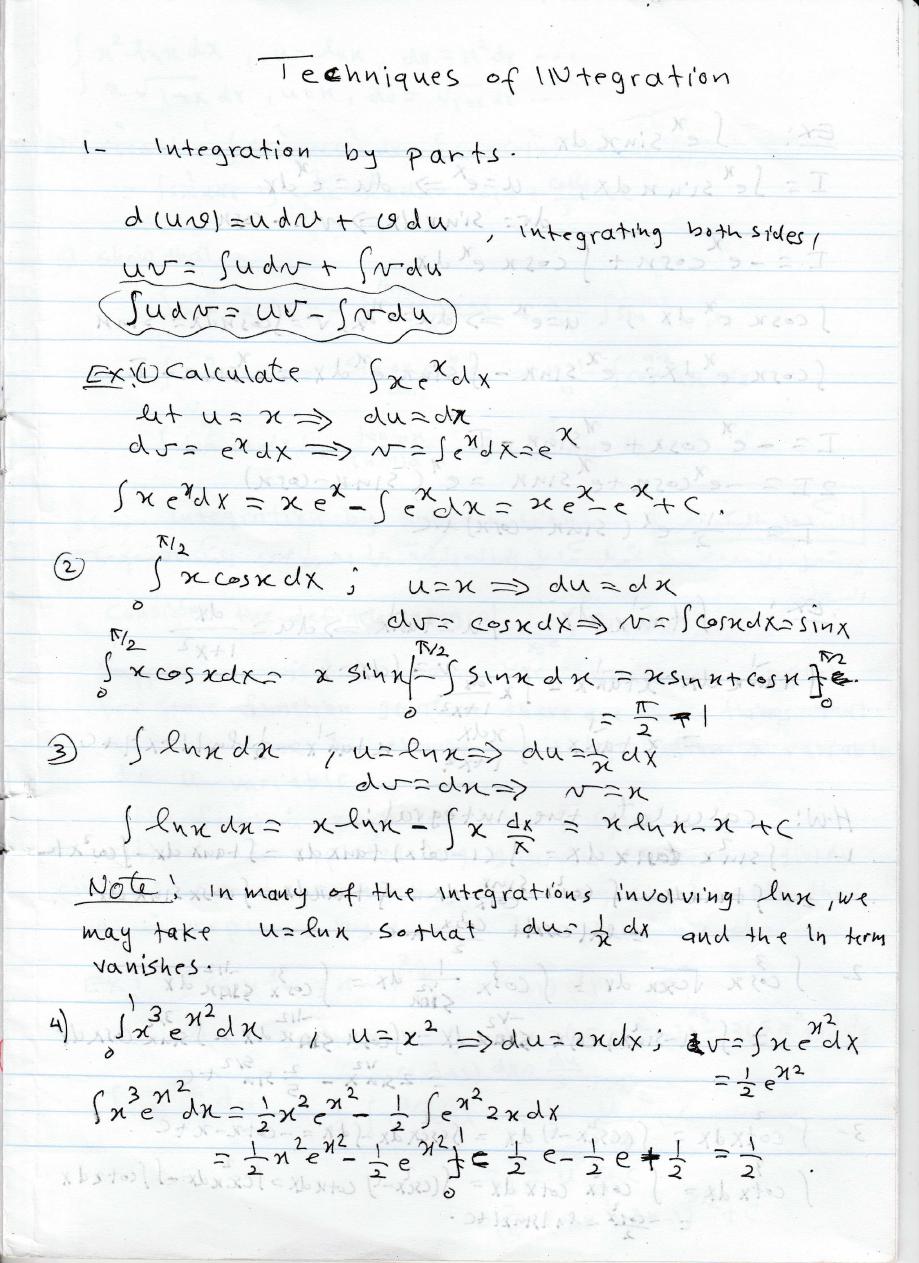 Techniques of INtegration
1- Integration by parts.
d(uv) = u dv + v du , integrating both sides,
uv = ∫u dv + ∫v du
∫u dv = uv - ∫v du
Ex: ① Calculate ∫x e^x dx
let u = x ⇒ du = dx
dv = e^x dx ⇒ v = ∫e^x dx = e^x
∫x e^x dx = x e^x - ∫e^x dx = x e^x - e^x + C .
② ∫_0^{π/2} x cosx dx ; u = x ⇒ du = dx
dv = cosx dx ⇒ v = ∫cosx dx = sinx
∫_0^{π/2} x cosx dx = x sinx |_0^{π/2} - ∫ sinx dx = x sinx + cosx ]_0^{π/2}
= π/2 - 1
③ ∫lnx dx , u = lnx ⇒ du = 1/x dx
dv = dx ⇒ v = x
∫lnx dx = x lnx - ∫x dx/x = x lnx - x + C
Note: in many of the integrations involving lnx, we
may take u = lnx so that du = 1/x dx and the ln term
vanishes.
4) ∫_0^1 x^3 e^{x^2} dx ; u = x^2 ⇒ du = 2x dx ; v = ∫x e^{x^2} dx
= 1/2 e^{x^2}
∫x^3 e^{x^2} dx = 1/2 x^2 e^{x^2} - 1/2 ∫e^{x^2} 2x dx
= 1/2 x^2 e^{x^2} - 1/2 e^{x^2} ]_0^1 = 1/2 e - 1/2 e + 1/2 = 1/2 .